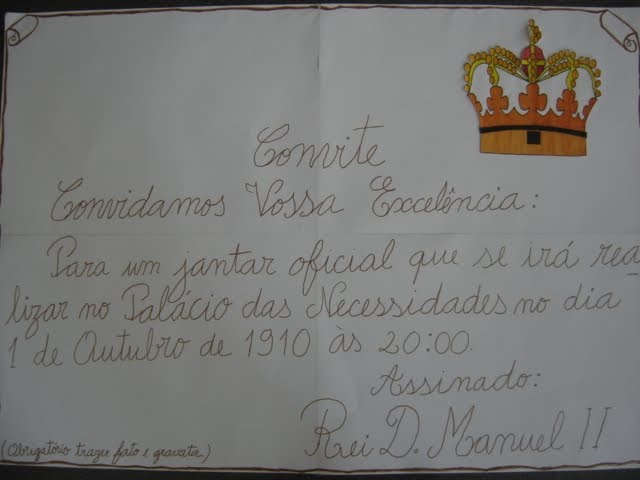 Convite
Convidamos Vossa Excelência:
Para um jantar oficial que se irá rea
lizar no Palácio das Necessidades no dia
1 de Outubro de 1910 às 20:00.
Assinado:
Rei D. Manuel II
(Obrigatório trazer fato e gravata)